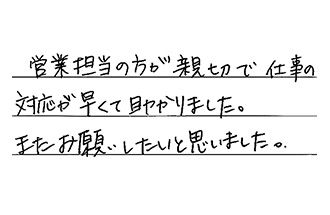 営業担当の方が親切で仕事の
対応が早くて助かりました。
またお願いしたいと思いました。